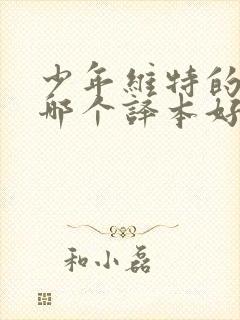 少年維特的
哪个譯本好
和小磊